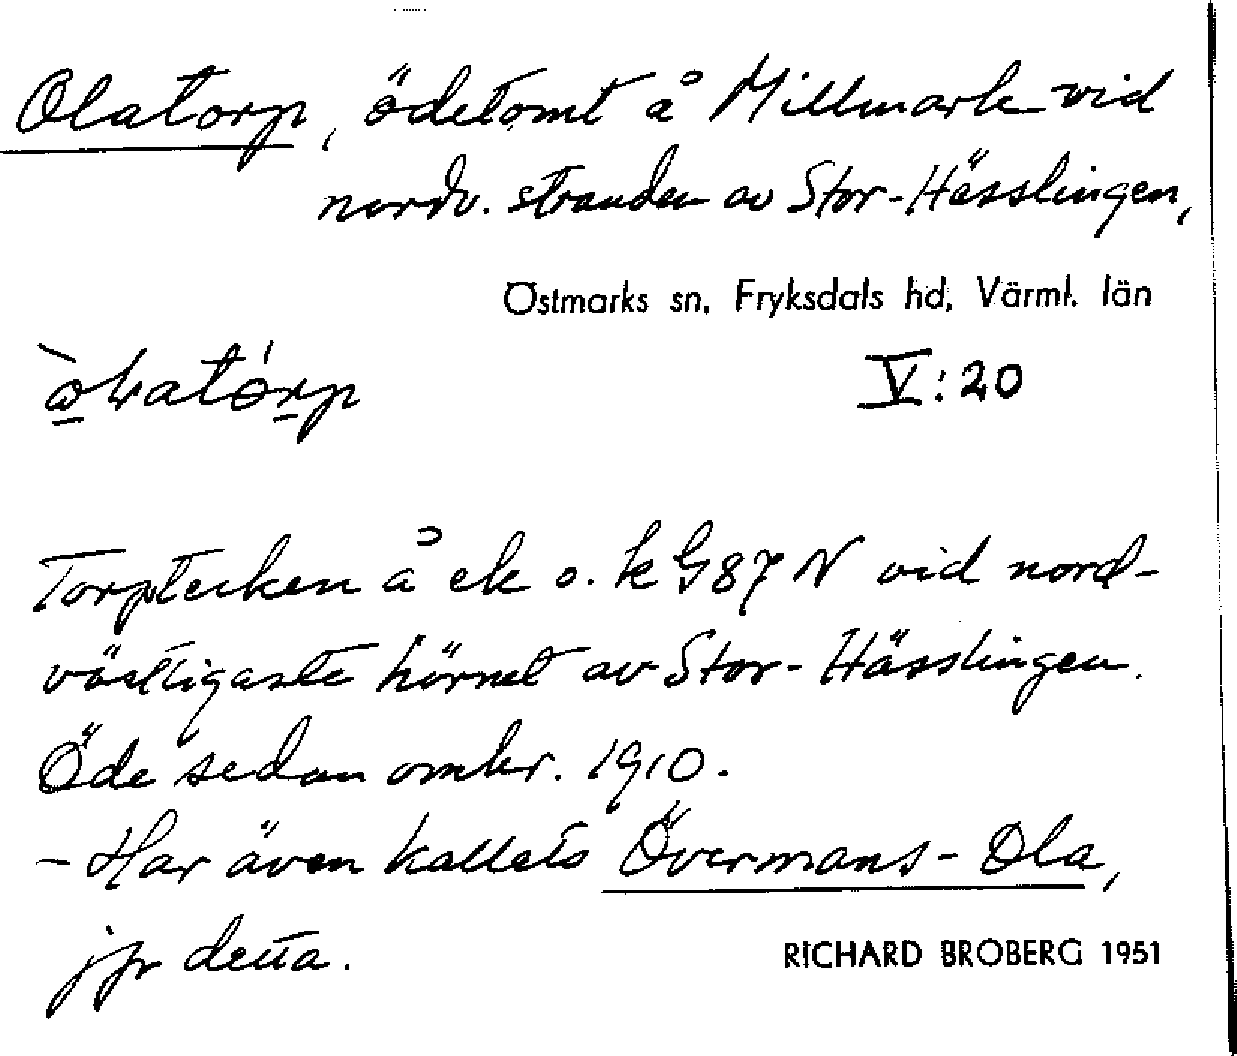 Olatorp, ödetomt å Millmark vid
nordv. stranden av Stor-Hässlingen,
Östmarks sn, Fryksdals hd, Värml. län
V:20
Torptecken å ek o. k G87 N vid nord-
västligaste hörnet av Stor-Hässlingen.
Öde sedan omkr. 1910.
- Har även kallats Övermans-Ola,
jfr detta.
RICHARD BROBERG 1951